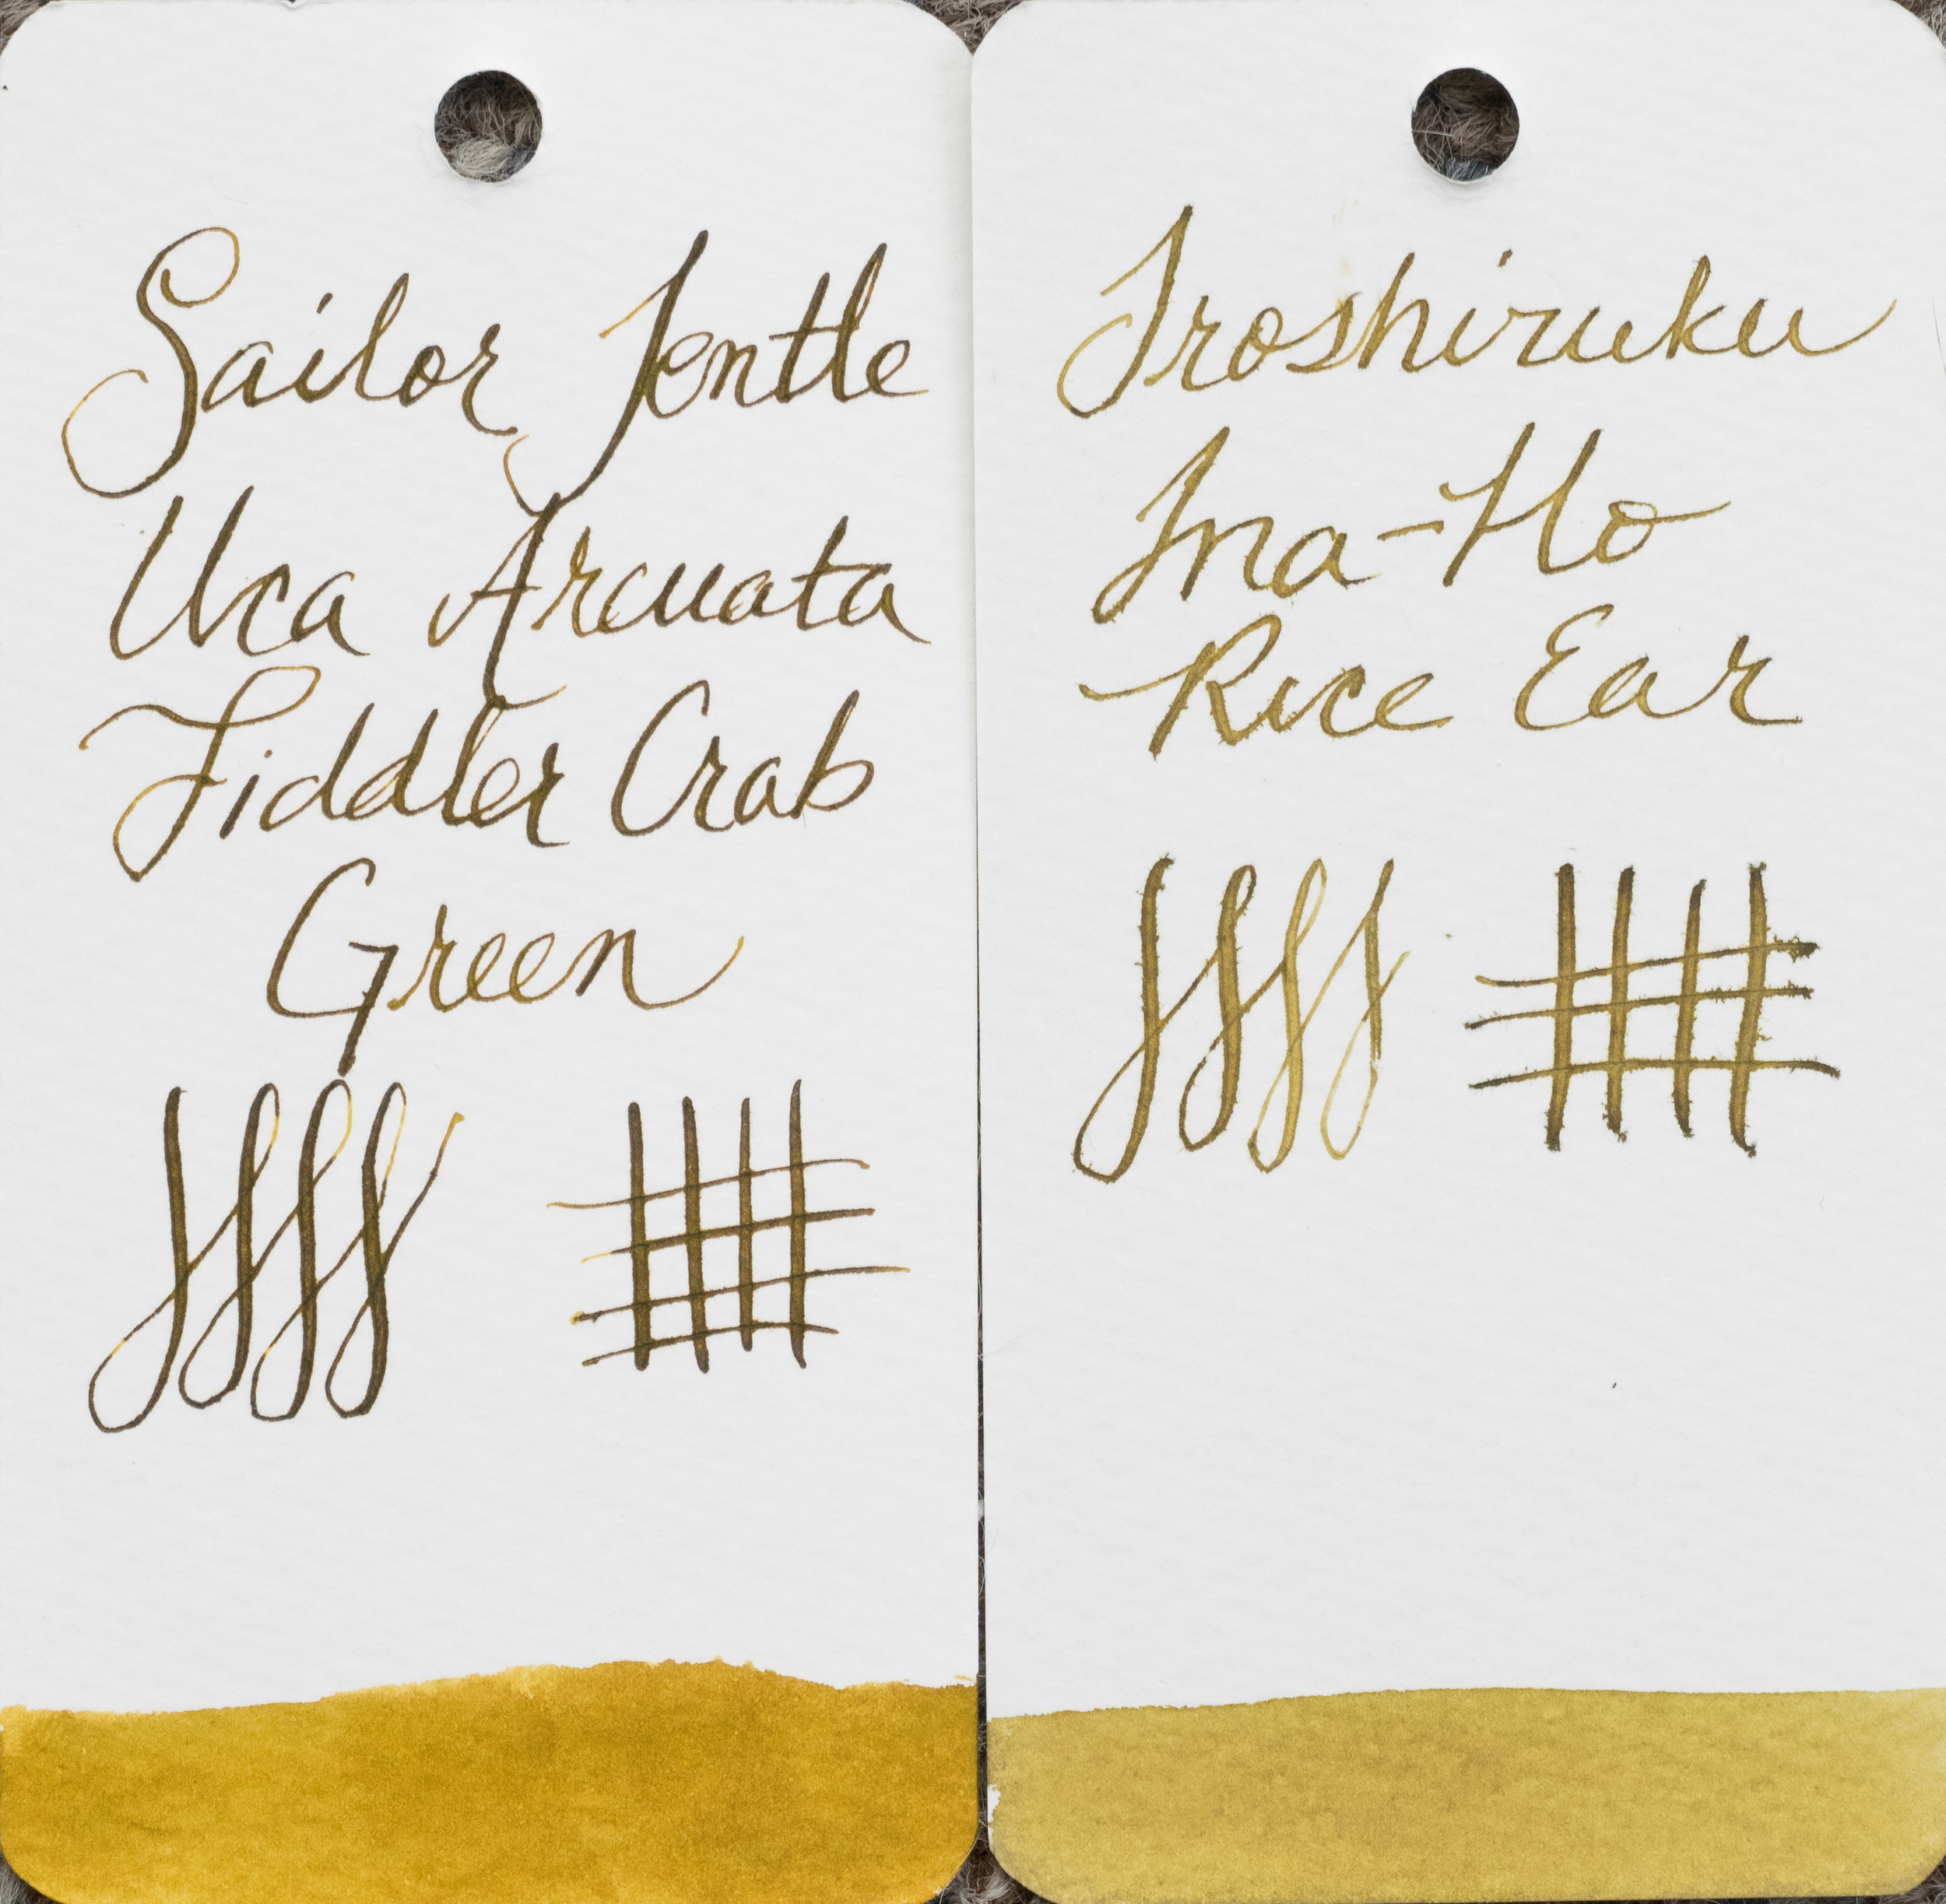 Sailor Jentle
Uca Arcuata
Fiddler Crab
Green
Iroshizuku
Ina-Ho
Rice Ear